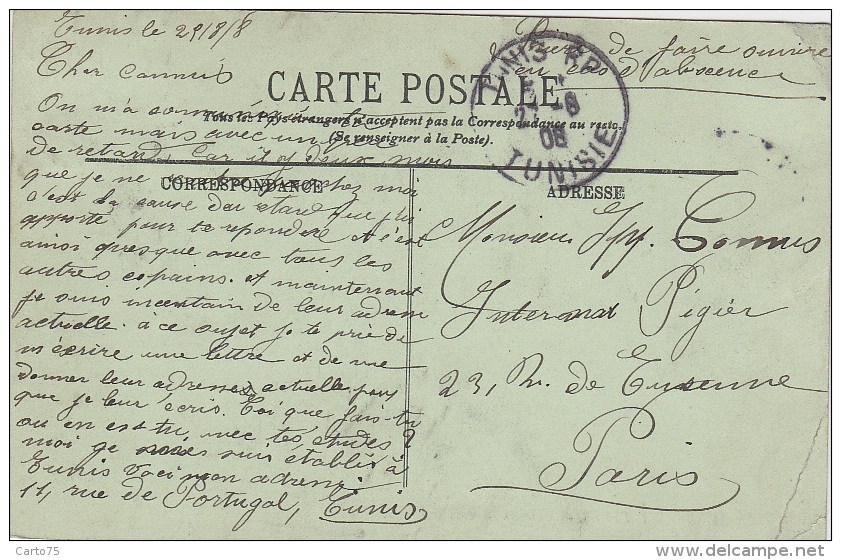 Tunis le 29/8/8
Prière de faire suivre
en cas d'absence
Cher Cannus
CARTE POSTALE
TUNIS RP
8
08
TUNISIE
On m'a
Tous les Pays étrangers n'acceptent pas la Correspondance au recto.
carte mais avec un
(Se renseigner à la Poste).
de retard, car il y deux mois
que je ne chez moi
CORRESPONDANCE
ADRESSE
c'est la cause du retard que j'ai
apporté pour te repondre et c'est
ainsi presque avec tous les
autres copains. et maintenant
je suis incertain de leur adresse
actuelle. à ce sujet je te prie de
m'écrire une lettre et de me
donner leur adresse actuelle pour
que je leur écris. Toi que fais-tu
ou en es tu avec tes études ?
moi je suis établis à
Tunis voci mon adresse
11, rue de Portugal, Tunis
Monsieur Connus
Internat Pigier
23, R. de Turenne
Paris
Carto75
www.delcampe.net